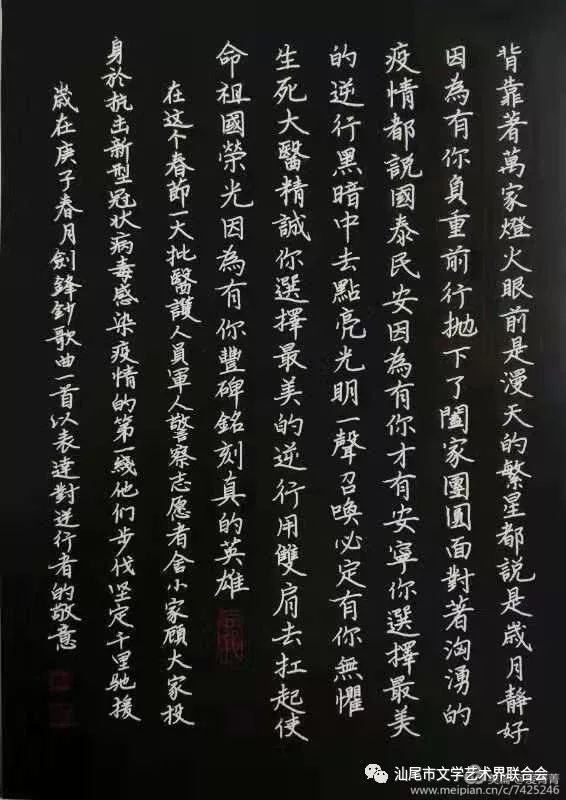 背靠著萬家燈火眼前是漫天的繁星都說是歲月靜好
因為有你負重前行抛下了闔家團圓面對著洶湧的
疫情都說國泰民安因為有你才有安寧你選擇最美
的逆行黑暗中去點亮光明一聲召唤必定有你無懼
生死大醫精誠你選擇最美的逆行用雙肩去扛起使
命祖國榮光因為有你豐碑銘刻真的英雄
在这个春節一大批醫護人員軍人警察志愿者舍小家顾大家投
身於抗击新型冠状病毒感染疫情的第一綫他们步伐坚定千里驰援
歲在庚子春月劍鋒鈔歌曲一首以表達對逆行者的敬意
汕尾市文学艺术界联合会
meipian.cn/c/7425246